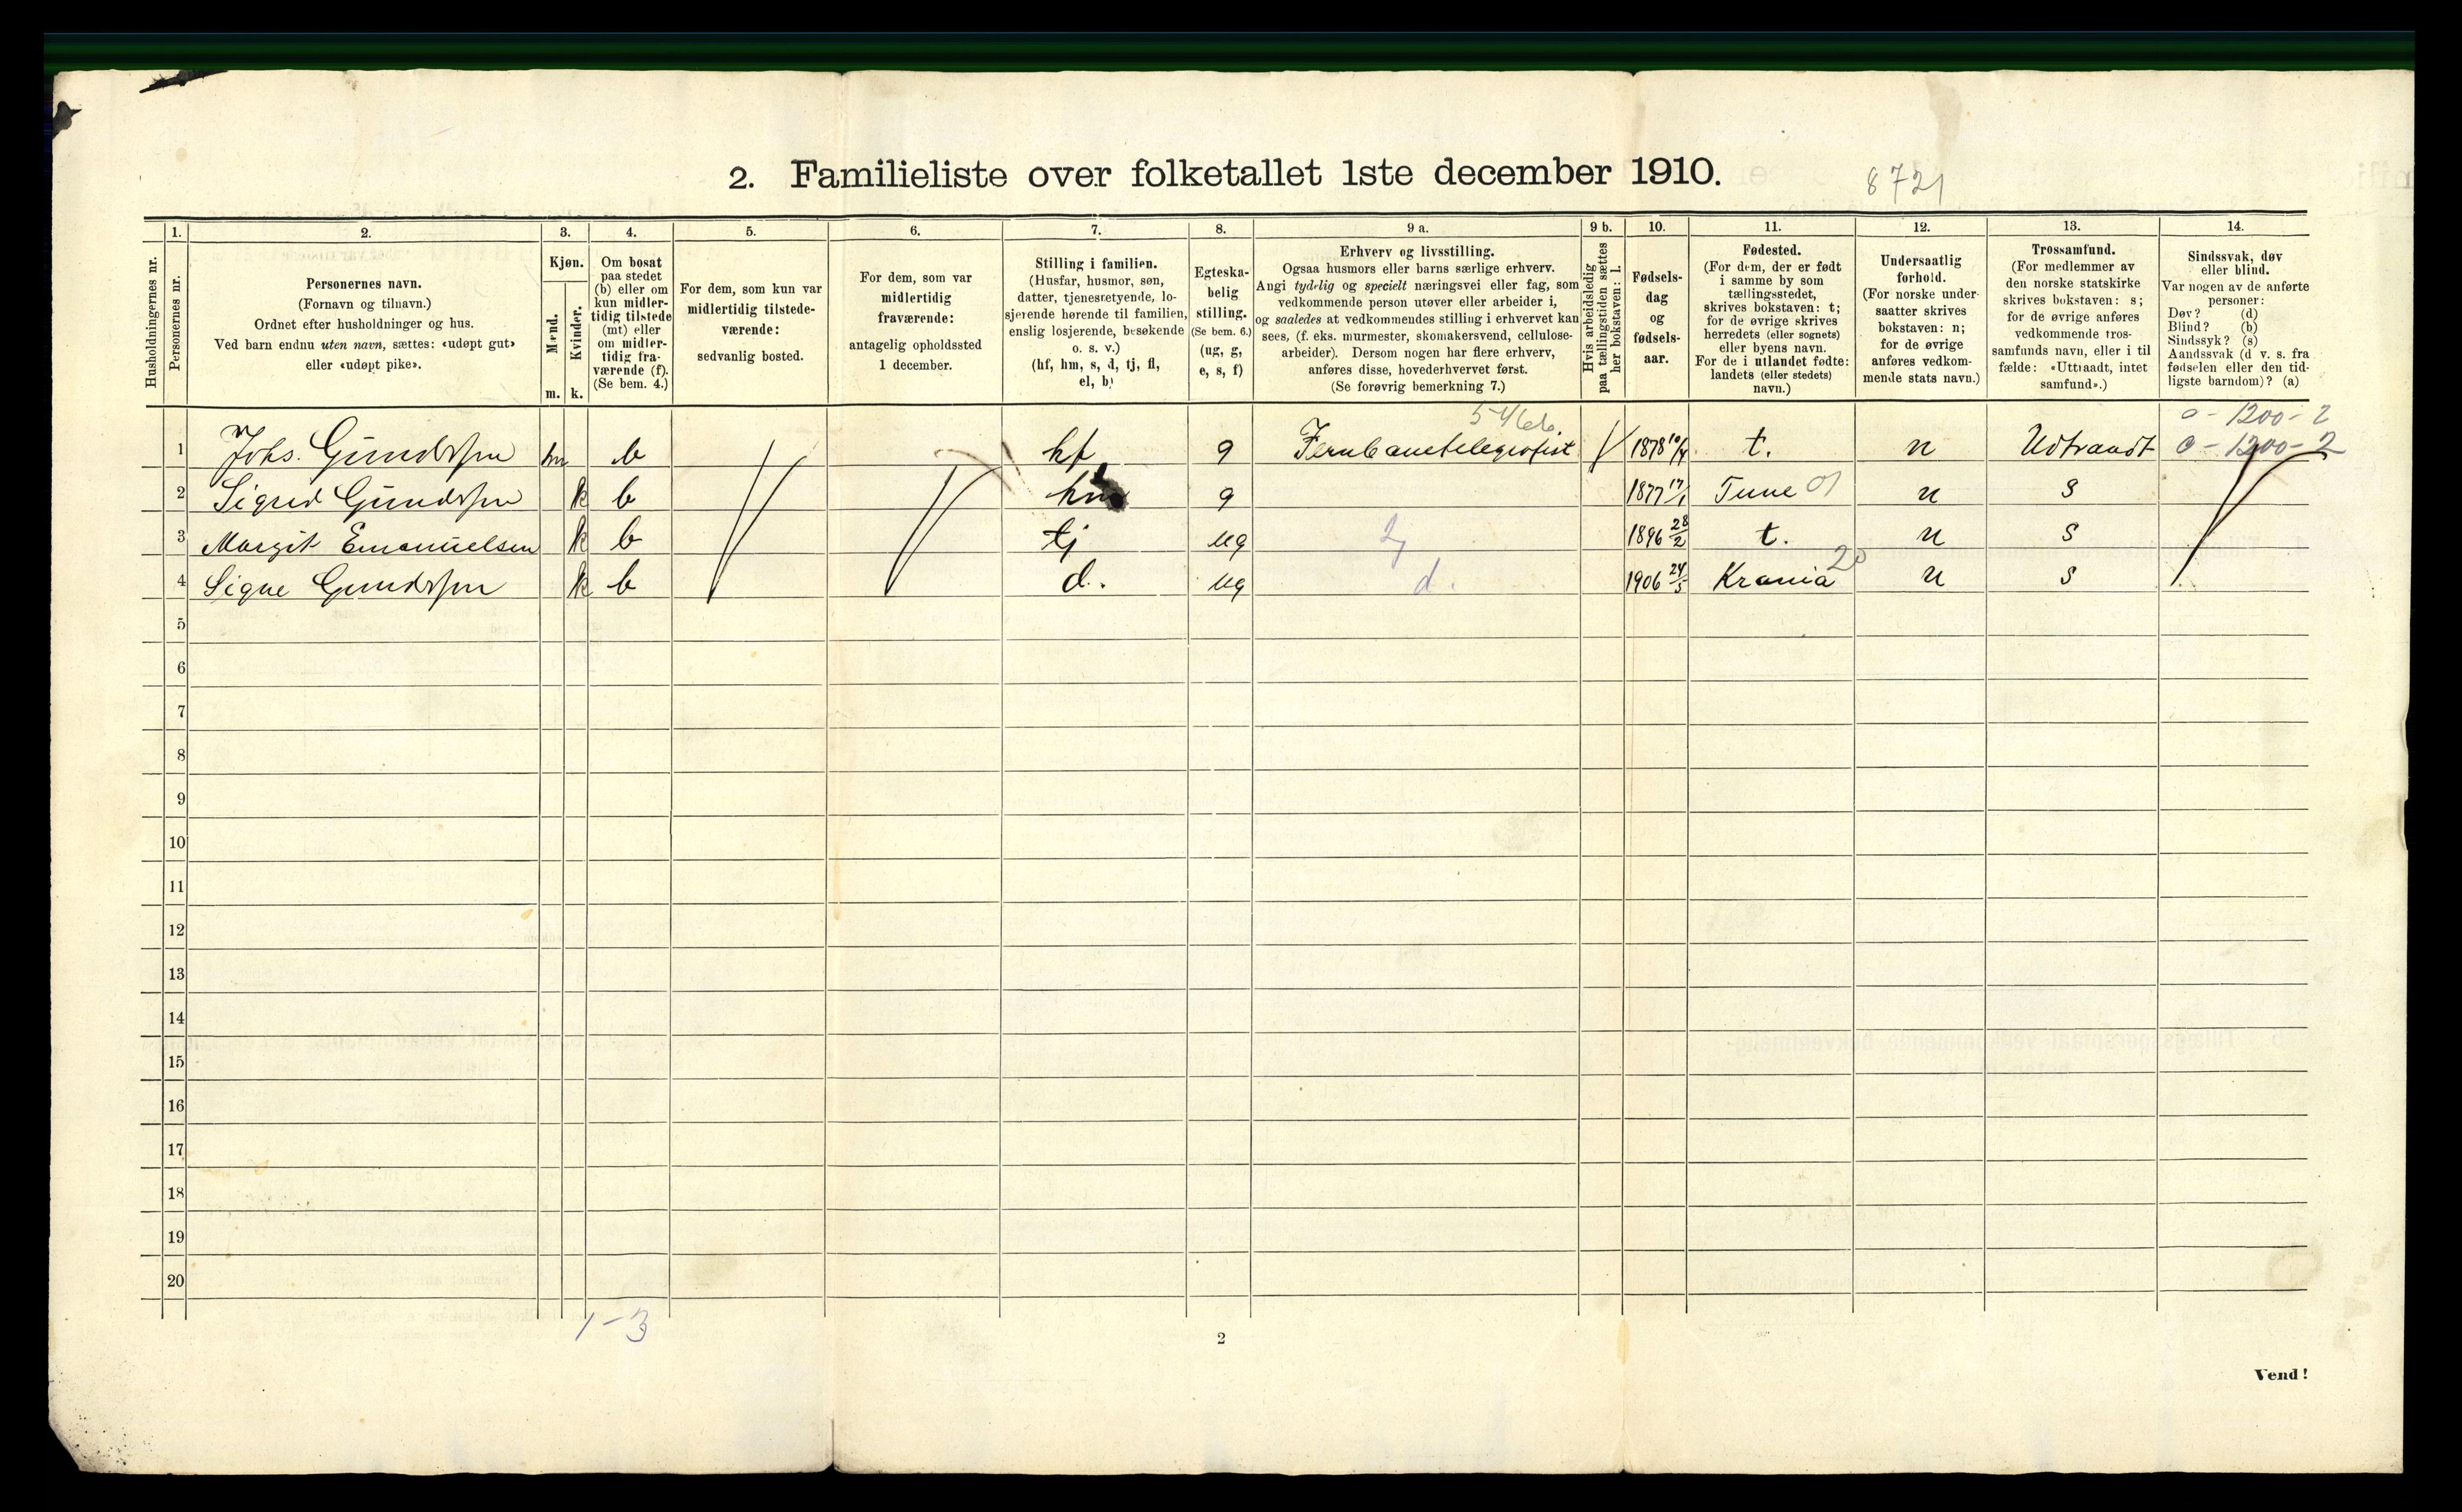 2. Familieliste over folketallet 1ste december 1910.
8721
1. 2. 3. 4. 5. 6. 7. 8. 9 a. 9 b. 10. 11. 12. 13. 14.
Husholdningernes nr.
Personernes nr.
Personernes navn.
(Fornavn og tilnavn.)
Ordnet efter husholdninger og hus.
Ved barn endnu uten navn, sættes: «udøpt gut»
eller «udøpt pike».
Kjøn.
Mænd.
Kvinder.
m. k.
Om bosat
paa stedet
(b) eller om
kun midler-
tidig tilstede
(mt) eller
om midler-
tidig fra-
værende (f).
(Se bem. 4.)
For dem, som kun var
midlertidig tilstede-
værende:
sedvanlig bosted.
For dem, som var
midlertidig
fraværende:
antagelig opholdssted
1 december.
Stilling i familien.
(Husfar, husmor, søn,
datter, tjenestetyende, lo-
sjerende hørende til familien,
enslig losjerende, besøkende
o. s. v.)
(hf, hm, s, d, tj, fl,
el, b)
Egteska-
belig
stilling.
(Se bem. 6.)
(ug, g,
e, s, f)
Erhverv og livsstilling.
Ogsaa husmors eller barns særlige erhverv.
Angi tydelig og specielt næringsvei eller fag, som
vedkommende person utøver eller arbeider i,
og saaledes at vedkommendes stilling i erhvervet kan
sees, (f. eks. murmester, skomakersvend, cellulose-
arbeider). Dersom nogen har flere erhverv,
anføres disse, hovederhvervet først.
(Se forøvrig bemerkning 7.)
Hvis arbeidsledig
paa tællingstiden sættes
her bokstaven: l.
Fødsels-
dag
og
fødsels-
aar.
Fødested.
(For dem, der er født
i samme by som
tællingsstedet,
skrives bokstaven: t;
for de øvrige skrives
herredets (eller sognets)
eller byens navn.
For de i utlandet fødte:
landets (eller stedets)
navn.)
Undersaatlig
forhold.
(For norske under-
saatter skrives
bokstaven: n;
for de øvrige
anføres vedkom-
mende stats navn.)
Trossamfund.
(For medlemmer av
den norske statskirke
skrives bokstaven: s;
for de øvrige anføres
vedkommende tros-
samfunds navn, eller i til
fælde: «Uttraadt, intet
samfund».)
Sindssvak, døv
eller blind.
Var nogen av de anførte
personer:
Døv? (d)
Blind? (b)
Sindssyk? (s)
Aandssvak (d v. s. fra
fødselen eller den tid-
ligste barndom)? (a)
0 - 1200 - 2
1 Johs. Gundersen m b hf g Jernbanetelegrafist 1878 10/4 t. n Udtraadt 0 - 1200 - 2
2 Sigrid Gundersen k b hm g 1877 17/1 Tune 01 n s
3 Margit Emanuelsen k b tj ug 1896 28/2 t. n s
4 Signe Gundersen k b d. ug d. 1906 24/5 Krania 20 n s
5
6
7
8
9
10
11
12
13
14
15
16
17
18
19
20
1-3
2
Vend!